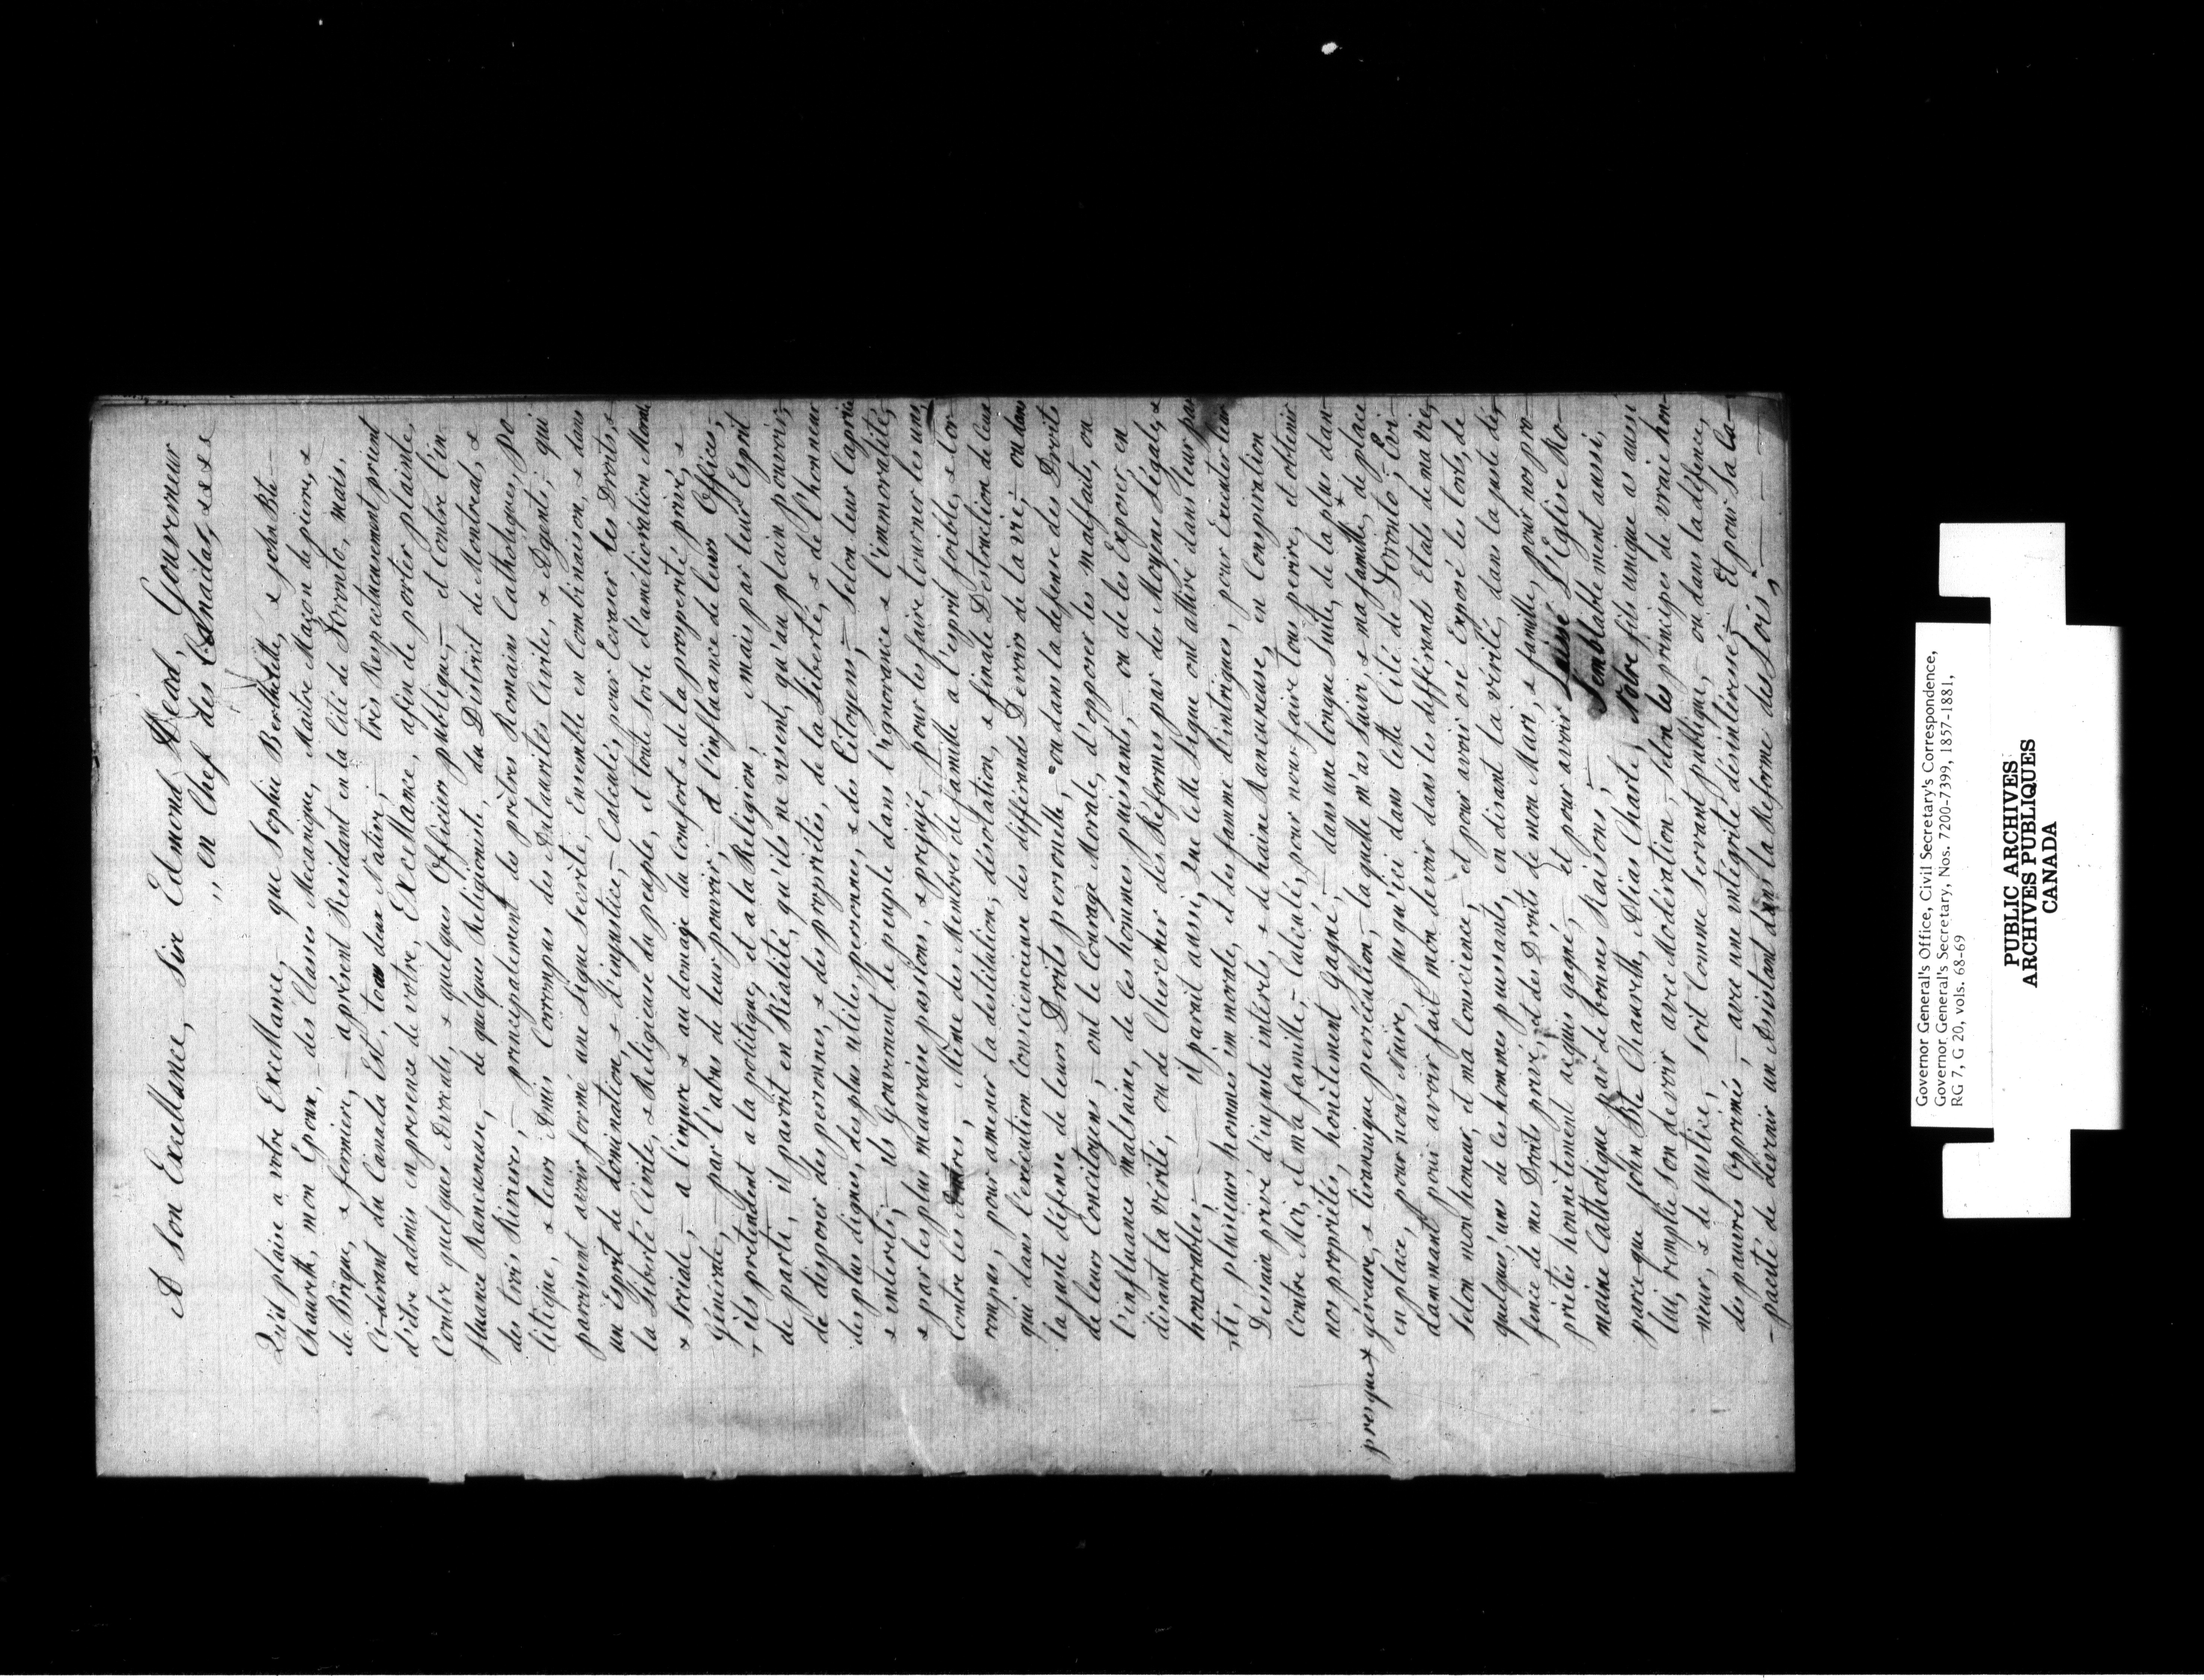 A Son Excellance, Sir Edmond Head, Gouverneur
,, en Chef des Canadas, &&&
Qu'il plaise a votre Excellance, — que Sophie Berthelette, & John Bte —
Chaurette, mon Époux, — des Classes Mecanique, Maitre Maçon de pierre, &
de Brique, & fermiere, — aprésent Residant en la Cité de Toronto, mais,
Ci-devant du Canada Est, tous deux Natives, — très Respectueusement prient
d'être admis en presence de votre, Excellance, afin de porter plainte,
Contre quelques Avocats, & quelques Officiers publique, — et Contre l'in-
fluance Rancuneuse, — de quelques Religioniste, du District de Montreal, &
des trois Rivieres, — principalement des prètres Romains Catholiques, po-
litique, & leurs Amis Corrompus des Autaurités Civiles, & Agents; qui
paroissent avoir formé une Ligue secrète, Ensemble en Combinaison, & dans
un Esprit de domination, & d'injustice, — Calculés, pour Ecraser les Droits, &
la Liberté Civile, & Religieuse du peuple, et toute sorte d'amélioration Moral,
& Sociale, — a l'injure & au domage du Comfort & de la prosperité privé, &
Générale, — par l'abus de leur pouvoir, — & l'influance de leurs Offices, —
, ils pretendent a la politique, et a la Religion, mais par leur Esprit
de parti, il paroit en Réalité, qu'ils ne visent, qu'au plain pouvoir,
de disposer des personnes, & des propriétés, de la Liberté, & de l'honneur
des plus dignes, des plus utiles, personnes, & des Citoyens, — Selon leur Caprice
& interêts; — ils Gouvernent le peuple dans l'ignorance & l'immoralité,
& par les plus mauvaise passions, & prejugé, — pour les faire tourner les uns,
Contre les autres, — Même des Membres de famille a l'esprit foible, & Cor-
rompus, pour amener la destitution, désolation, & finale Destruction de Ceux
qui dans l'exécution Consciencieuse des differends Devoirs de la vie; — ou dans
la juste défense de leurs Droits personelle, — ou dans la defense des Droits
de leurs Concitoyens, — ont le Courage Morale, d'opposer les malfaits, ou
l'influance malsaine, de les hommes puissants, — ou de les Exposer, en
disant la vérité, ou de Chercher des Réformes par des Moyens Légals, &
honorables, — il parait aussi, que cette Ligue ont attiré dans leur par-
ti, plusieurs hommes immorale, et des famme d'intrigues, pour Executer leur
Dessain privé d'injuste intérêts, & de haine Rancuneuse, en Conspiration
Contre Moi, et ma famille, — Calculé, pour nous faire tous perire, et obtenir
nos propriétés, honêtement Gagné, — dans une longue Suite, de la plus dan-
presque+ géreuse, & tirannique persécution, — laquelle m'as Suivi, & ma famille,+ de place
en place, pour nous Nuire, jusqu'ici dans Cette Cité de Toronto; Evi-
dammant pour avoir fait mon devoir dans les différends Etats de ma vie,
Selon mon honeur, et ma Conscience, — et pour avoir osé Exposé les torts, de
quelques'uns de les hommes puissants, en disant la vérité, dans la juste dé-
fence de mes Droits privé, et des Droits de mon Mari, & famille, pour nos pro-
priétés honnêtement acquis gagné, — et pour avoir Laissé L'Eglise Ro-
maine Catholique par de bonnes Raisons; — Semblablement aussi,
parce-que John Bte Chaurette, Alias Charle, Notre fils unique as aussi
lui, remplie Son devoir avec Modération, — Selon les principes de vraie hon-
neur, & de justice, Soit Comme Servant publique, — ou dans la défence,
des pauvres Opprimés, — avec une integrité désintéressé; — Et pour Sa Ca-
-pacité de devenir un Assistant dans la Réforme des Lois, —
Governor General's Office, Civil Secretary's Correspondence,
Governor General's Secretary, Nos. 7200-7399, 1857-1881,
RG 7, G 20, vols. 68-69
PUBLIC ARCHIVES
ARCHIVES PUBLIQUES
CANADA